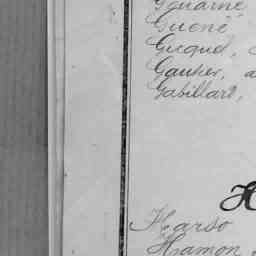 Guéné
Gicquel,
Gautier, a
Gabillard,
H
Harso
Hamon